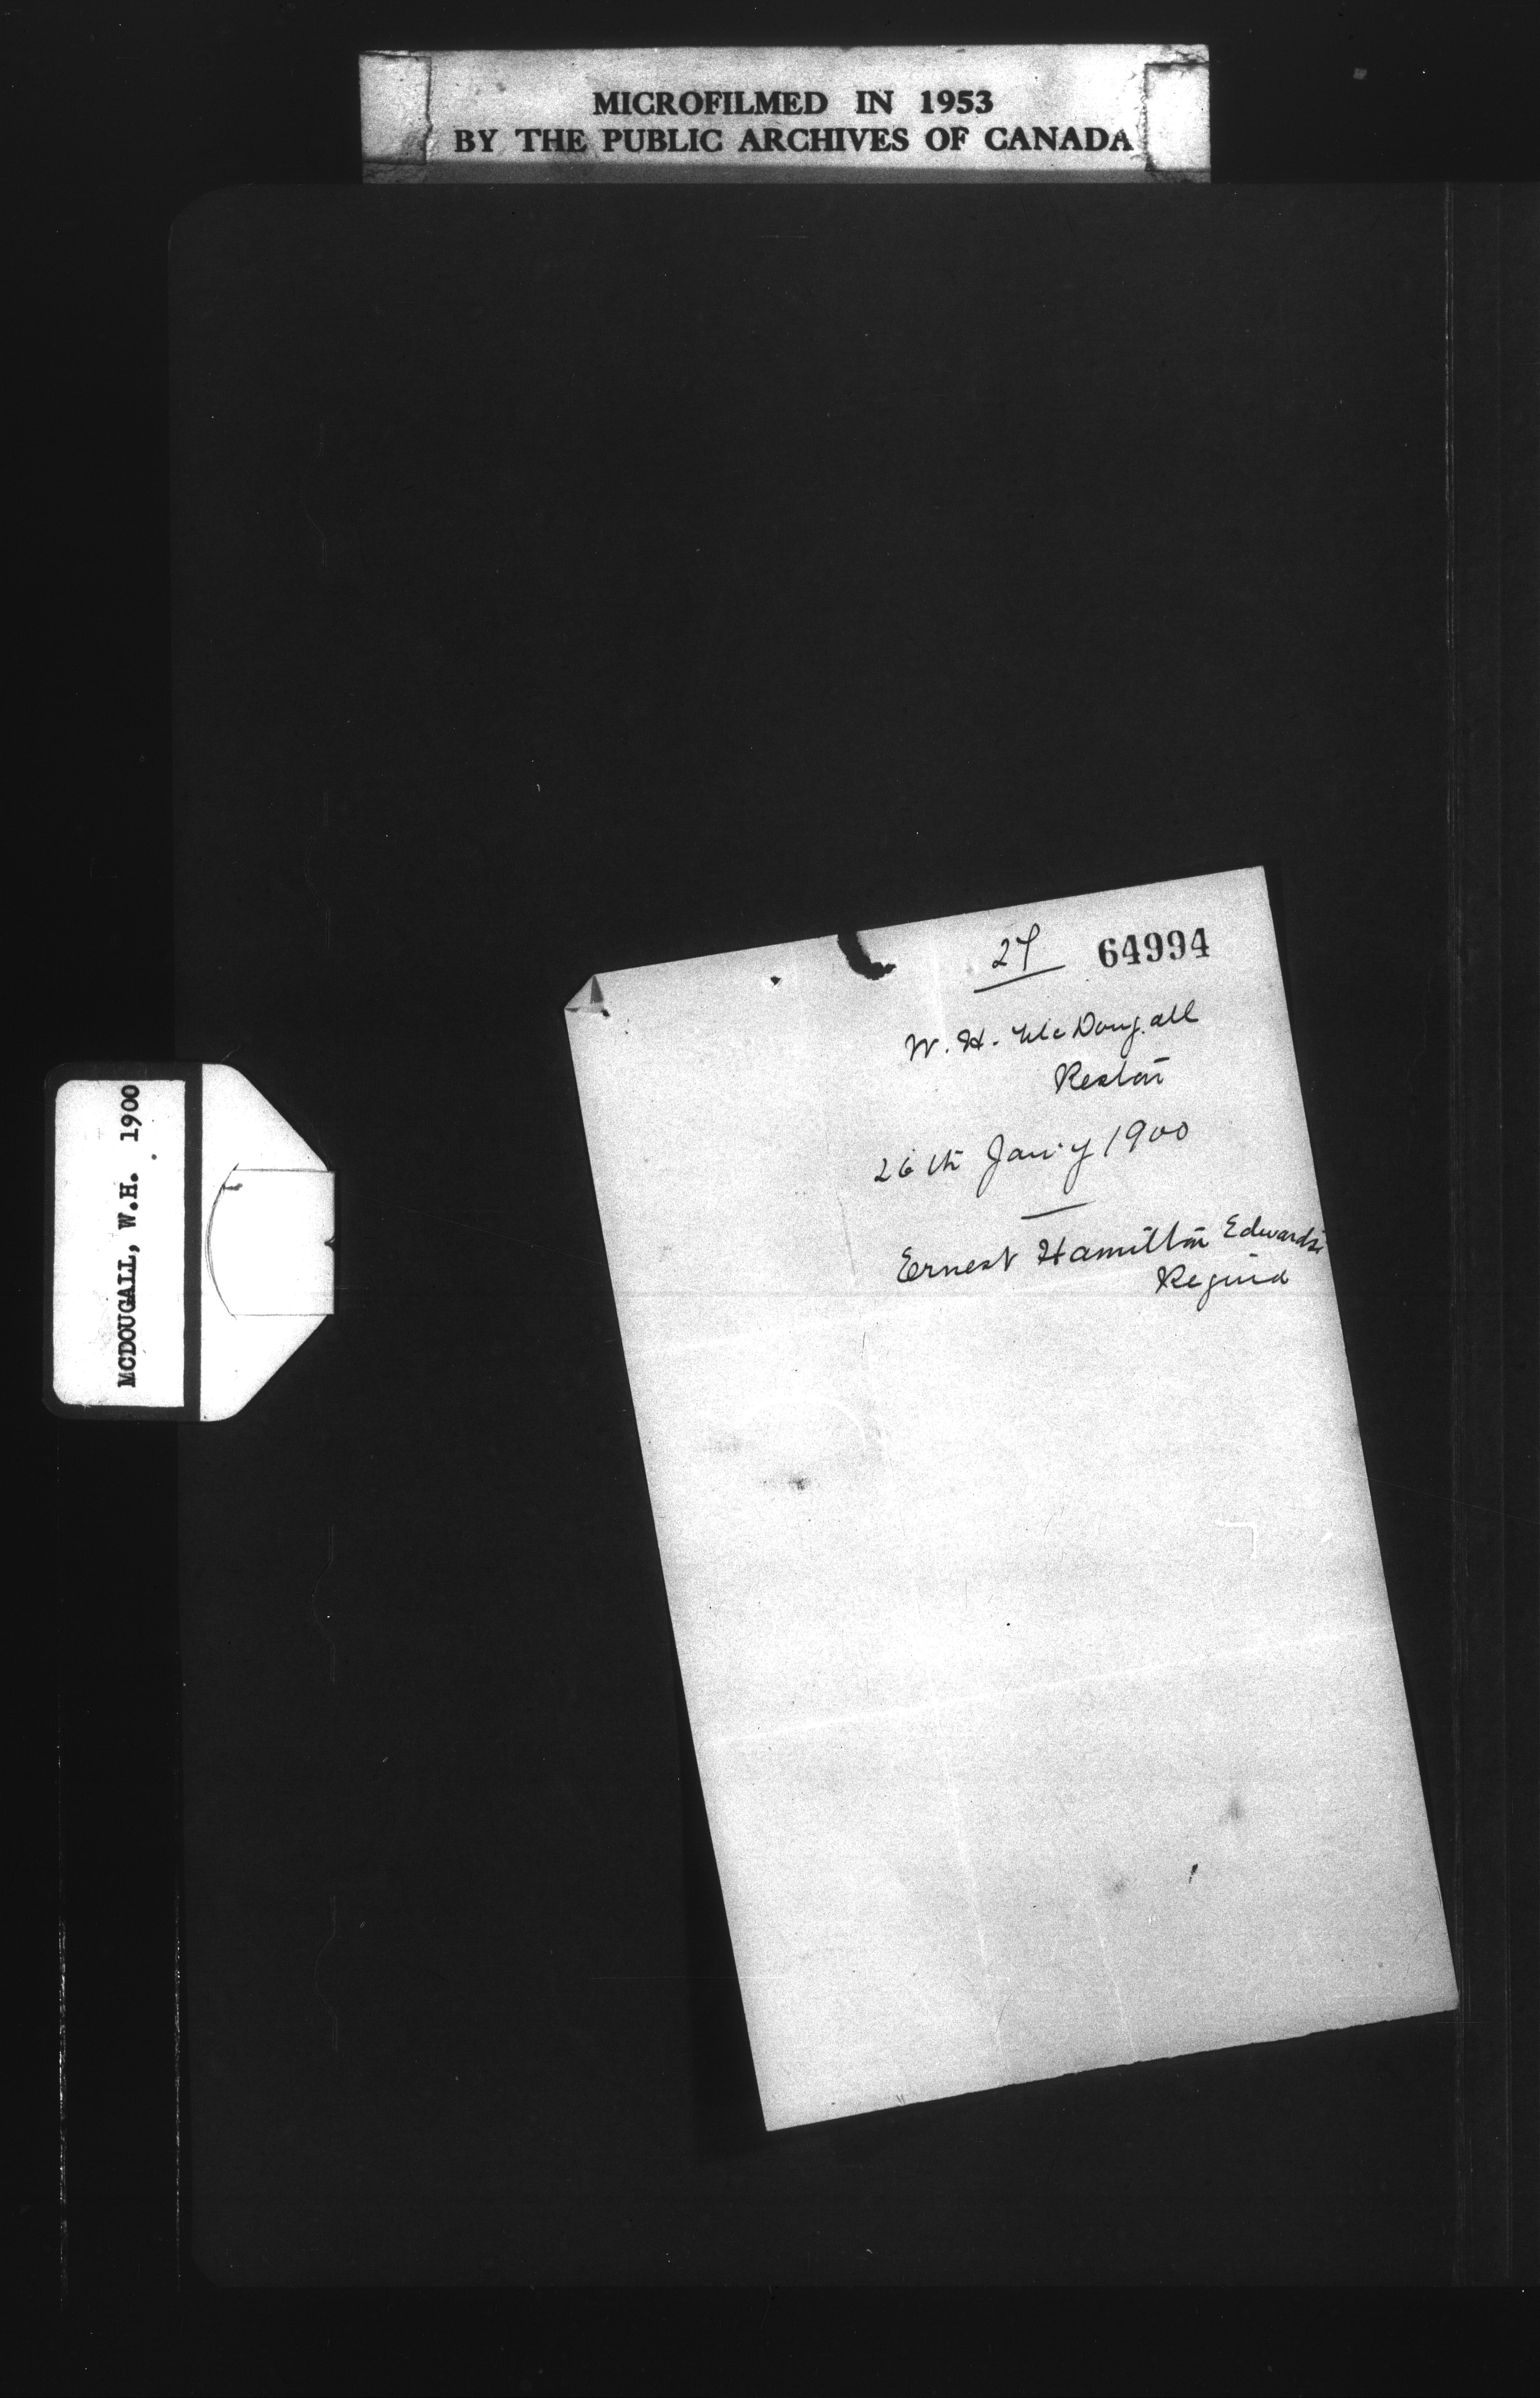 MICROFILMED IN 1953
BY THE PUBLIC ARCHIVES OF CANADA
64994
W. H. McDougall
Reston
26th Jan'y 1900
Ernest Hamilton Edwards
Regina
MCDOUGALL, W.H. 1900